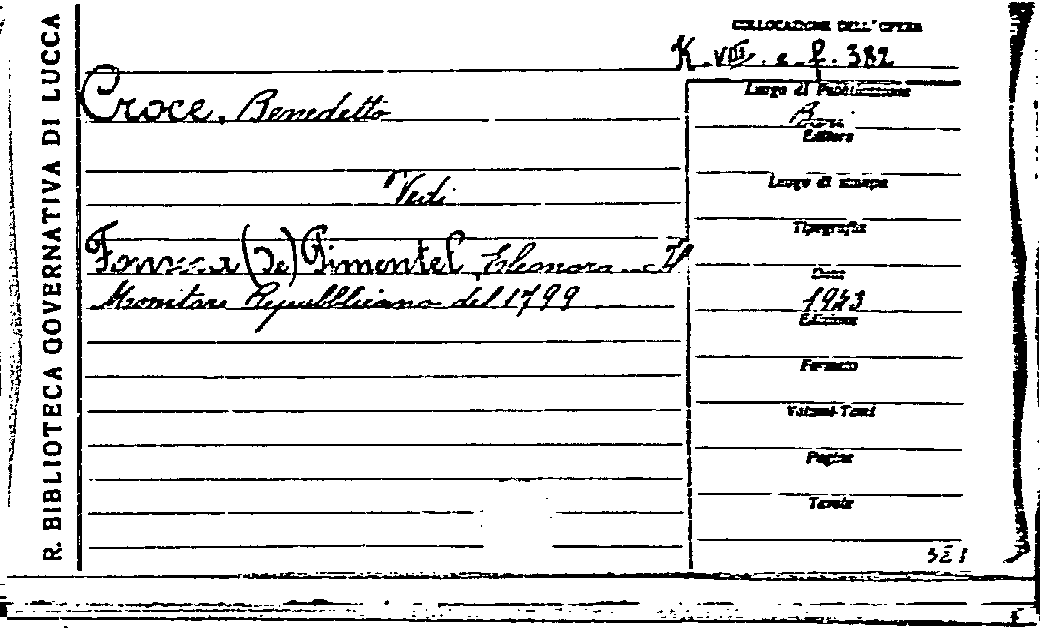 R. BIBLIOTECA GOVERNATIVA DI LUCCA
COLLOCAZIONE DELL'OPERA
K. VIII. e. f. 382
Croce, Benedetto
Vedi
Fonseca (De) Pimentel, Eleonora - Il
Monitore Repubblicano del 1799
Luogo di Pubblicazione
Bari
Editore
Luogo di stampa
Tipografia
Data
1943
Edizione
Formato
Volumi-Tomi
Pagine
Tavole